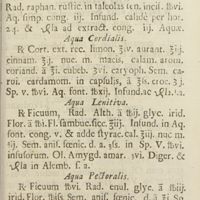 Rad. raphan. rustic. in taleolas ten. incis. ℔vi.
Aq. simp. cong. iij. Infund. calidè per hor.
24. & la ad extract. cong. iij. Aquæ.
Aqua Cordialis.
℞ Cort. ext. rec. limon. ℥iv. aurant. ℥ij.
cinnam. ʒiij. nuc. m. macis, calam. arom.
coriand. ā ʒi. cubeb. ʒvi. caryoph. Sem. ca-
roi, cardamom. in capsulis, ā ℥ss. croc. ʒi.
Sp. v. ℔vi. Aq. font. ℔xij. Infund.ac la.s.a.
Aqua Lenitiva.
℞ Ficuum, Rad. Alth. ā ℔ij. glyc. irid.
Flor. ā ℔i. Fl. sambuc. sicc. ℥iij. Infund. in Aq.
font. cong. v. & adde styrac. cal. ℥iij. nuc. m.
℥ij. Sem. anis. fœnic. d. a. ℥ss. in Sp. V. ℔vi.
infusorum. Ol. Amygd. amar. ℥vi. Diger. &
la in Alemb. f. a.
Aqua Pectoralis.
℞ Ficuum ℔vi. Rad. enul. glyc. ā ℔iij.
irid. Flor. ℔iss Sem. anis. fœnic. d.